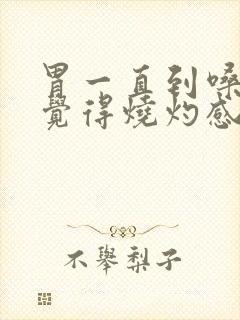 胃一直到嗓
覺得燒灼感
不舉梨子